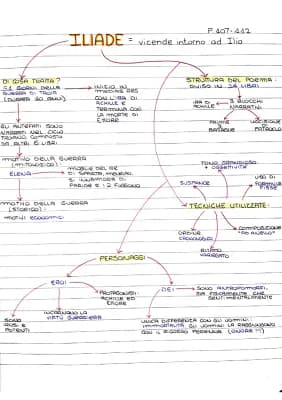 P. 407-412
ILIADE = vicende intorno ad Ilio
DI COSA TRATTA?
51 GIORNI DELLA
GUERRA DI TROIA
(DURATA 10 ANNI)
INIZIO IN
MEDIAS RES
CON L'IRA DI
ACHILLE E
TERMINA CON
LA MORTE DI
ETTORE
STRUTTURA DEL POEMA:
DIVISO IN 24 LIBRI
IRA DI
ACHILLE
3 BLOCCHI
NARRATIVI
PRIME
BATTAGLIE
UCCISIONE
DI
PATROCLO
GLI ANTEFATTI SONO
NARRATI NEL CICLO
TROIANO COMPOSTO
DA ALTRI 6 LIBRI
MOTIVO DELLA GUERRA
(MITOLOGICO):
ELENA
MOGLIE DEL RE
DI SPARTA, MENELAO,
SI INNAMORA DI
PARIDE E I 2 FUGGONO
MOTIVO DELLA GUERRA
(STORICO):
MOTIVI ECONOMICI
TONO GRANDIOSO
+ OGGETTIVITÀ
USO DI
FORMULE
FISSE
TECNICHE UTILIZZATE:
COMPOSIZIONE
"AD ANELLO"
ORDINE
CRONOLOGICO
RITMO
VARIEGATO
PERSONAGGI
EROI
DEI
PROTAGONISTI:
ACHILLE ED
ETTORE
SONO ANTROPOMORFI,
SIA FISICAMENTE CHE
SENTIMENTALMENTE
INCARNANO LA
VIRTÙ GUERRIERA
SONO
POTENTI
UNICA DIFFERENZA CON GLI UOMINI:
IMMORTALITÀ
GLI UOMINI LA RAGGIUNGONO
CON IL RICORDO PERENNE (ONORE !!)